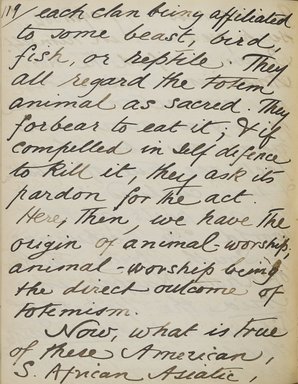 119/ each clan being affiliated
to some beast, bird,
fish, or reptile. They
all regard the totem
animal as sacred. They
forbear to eat it; & if
compelled in self defence
to kill it, they ask its
pardon for the act.
Here, then, we have the
origin of animal-worship;
animal-worship being
the direct outcome of
totemism.
Now, what is true
of these American,
S. African Asiatic,